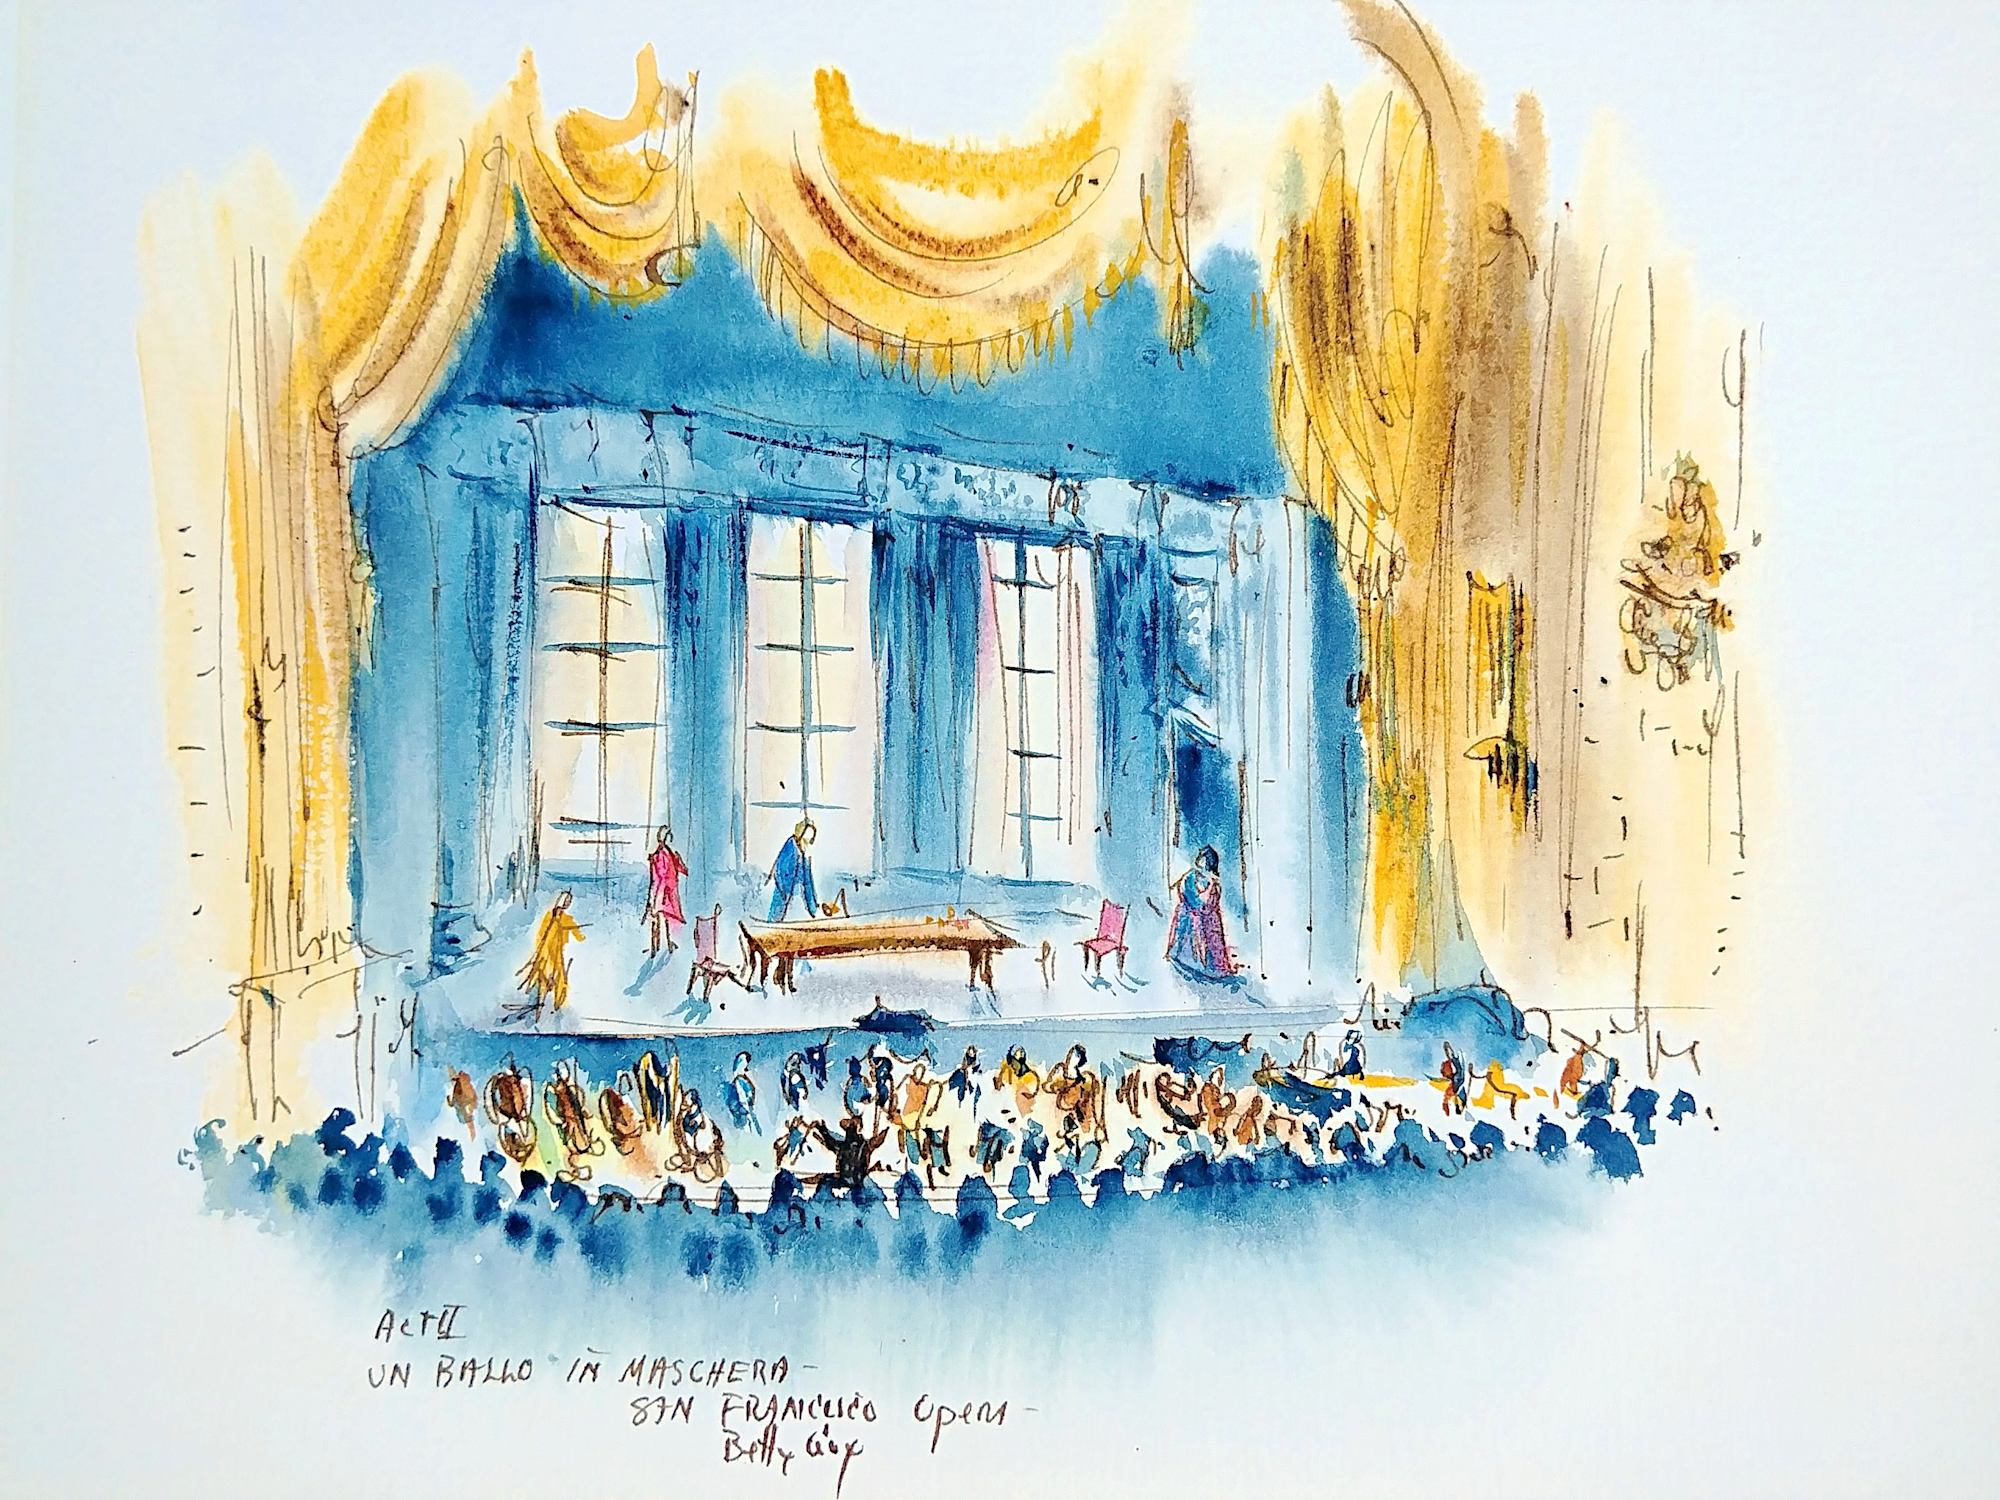 Act II
UN BALLO IN MASCHERA -
SAN FRANCISCO Opera -
Betty Guy